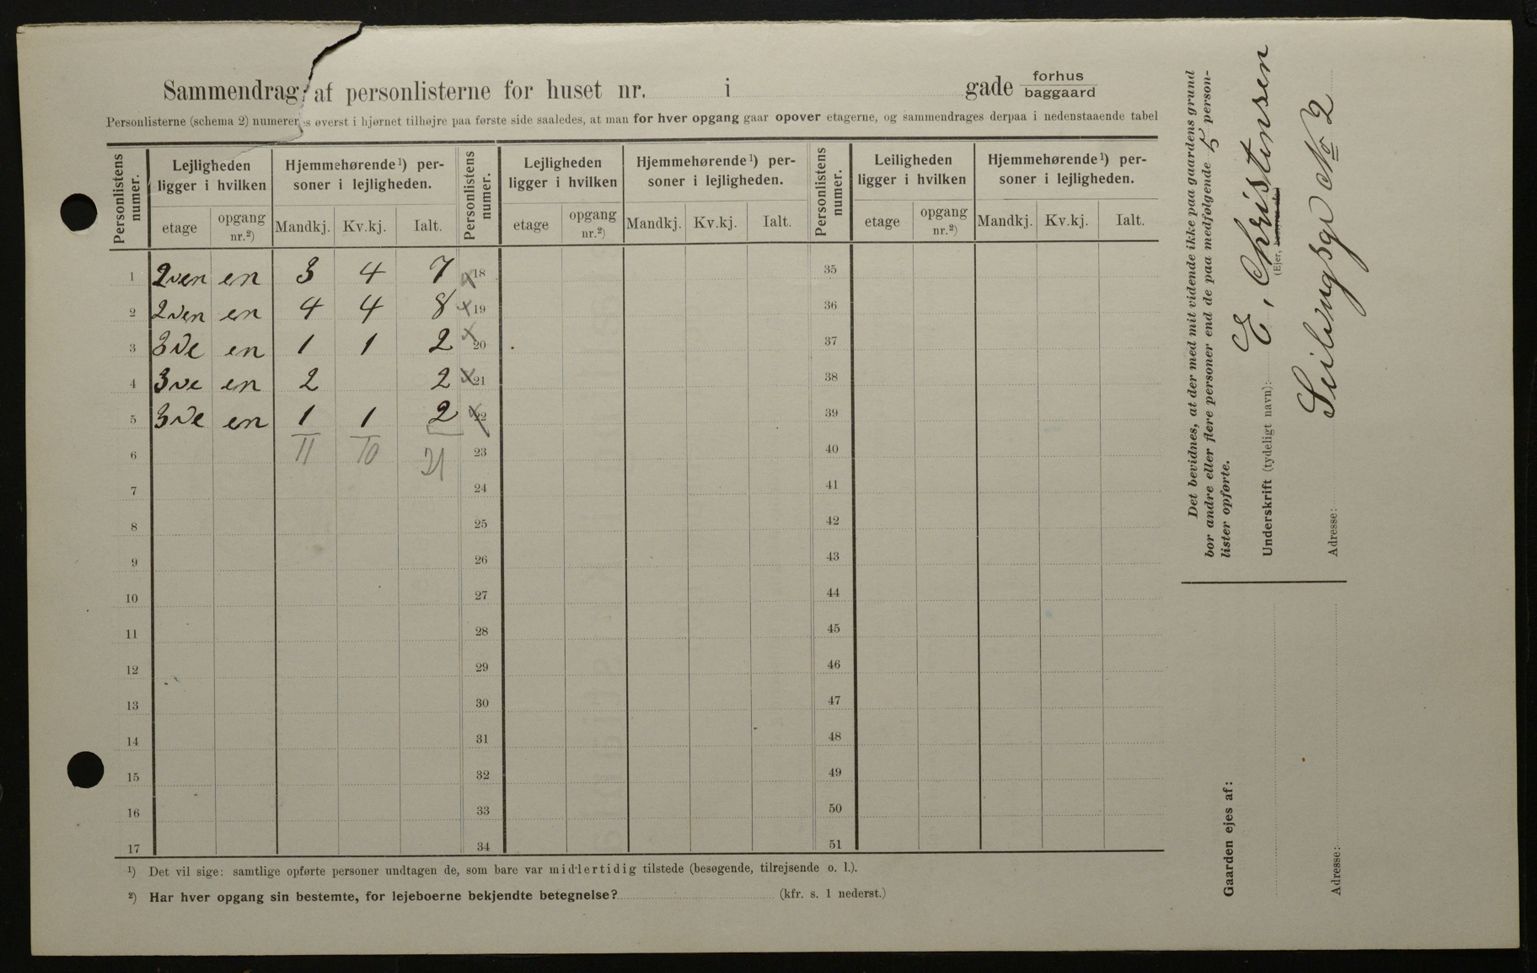 Sammendrag af personlisterne for huset nr. i gade forhus baggaard
Personlisterne (schema 2) numereres øverst i hjørnet tilhøjre paa første side saaledes, at man for hver opgang gaar opover etagerne, og sammendrages derpaa i nedenstaaende tabel
Personlistens numer. Lejligheden ligger i hvilken etage opgang nr.²) Hjemmehørende¹) personer i lejligheden. Mandkj. Kv.kj. Ialt.
Personlistens numer. Lejligheden ligger i hvilken etage opgang nr.²) Hjemmehørende¹) personer i lejligheden. Mandkj. Kv.kj. Ialt.
Personlistens numer. Leiligheden ligger i hvilken etage opgang nr.²) Hjemmehørende¹) personer i lejligheden. Mandkj. Kv.kj. Ialt.
1 2den en 3 4 7 18 35
2 2den en 4 4 8 19 36
3 3de en 1 1 2 20 37
4 3de en 2 2 21 38
5 3de en 1 1 2 22 39
6 11 10 21 23 40
7 24 41
8 25 42
9 26 43
10 27 44
11 28 45
12 29 46
13 30 47
14 31 48
15 32 49
16 33 50
17 34 51
¹) Det vil sige: samtlige opførte personer undtagen de, som bare var midlertidig tilstede (besøgende, tilrejsende o. l.).
²) Har hver opgang sin bestemte, for lejeboerne bekjendte betegnelse? (kfr. s. 1 nederst.)
Det bevidnes, at der med mit vidende ikke paa gaardens grund
bor andre eller flere personer end de paa medfølgende 5 person-
lister opførte.
Underskrift (tydeligt navn): E. Christinsen
(Ejer,
Adresse: No 2
Gaarden ejes af:
Adresse: